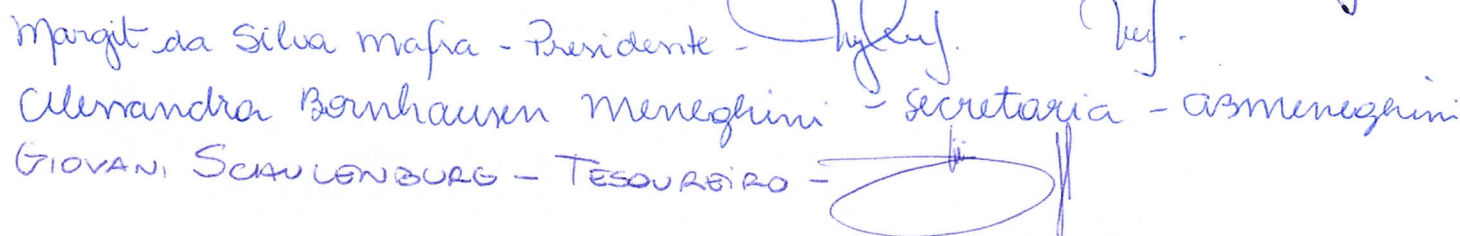 Margit da Silva Mafra - Presidente -
Alessandra Bornhausen Meneghini - Secretaria - abmeneghini
GIOVANI SCHULENBURG - TESOUREIRO -